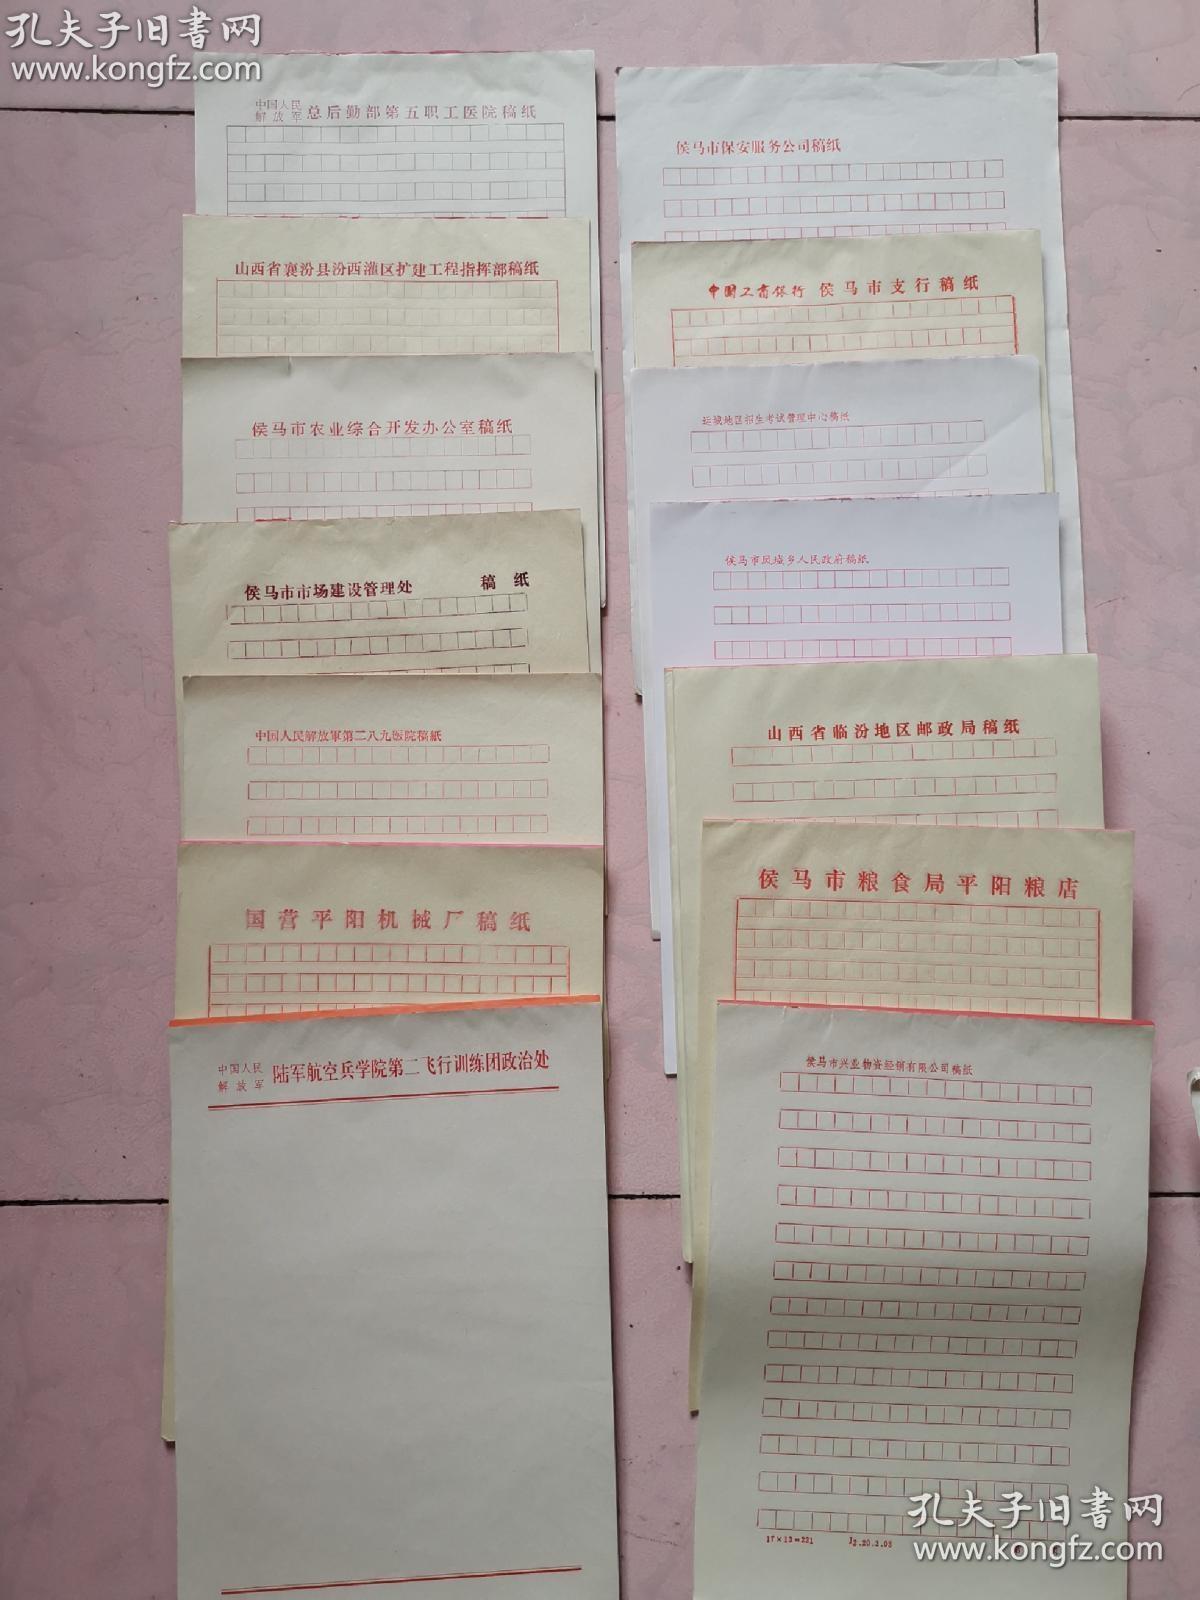 孔夫子旧書网
www.kongfz.com
中国人民
解放军
总后勤部第五职工医院稿纸
山西省襄汾县汾西灌区扩建工程指挥部稿纸
侯马市农业综合开发办公室稿纸
侯马市市场建设管理处 稿纸
中国人民解放軍第二八九医院稿紙
国营平阳机械厂稿纸
中国人民
解放军
陆军航空兵学院第二飞行训练团政治处
侯马市保安服务公司稿纸
中国工商银行 侯马市支行稿纸
运城地区招生考试管理中心稿纸
侯马市凤城乡人民政府稿纸
山西省临汾地区邮政局稿纸
侯马市粮食局平阳粮店
侯马市兴业物资经销有限公司稿纸
17×13=221
孔夫子旧書网
www.kongfz.com